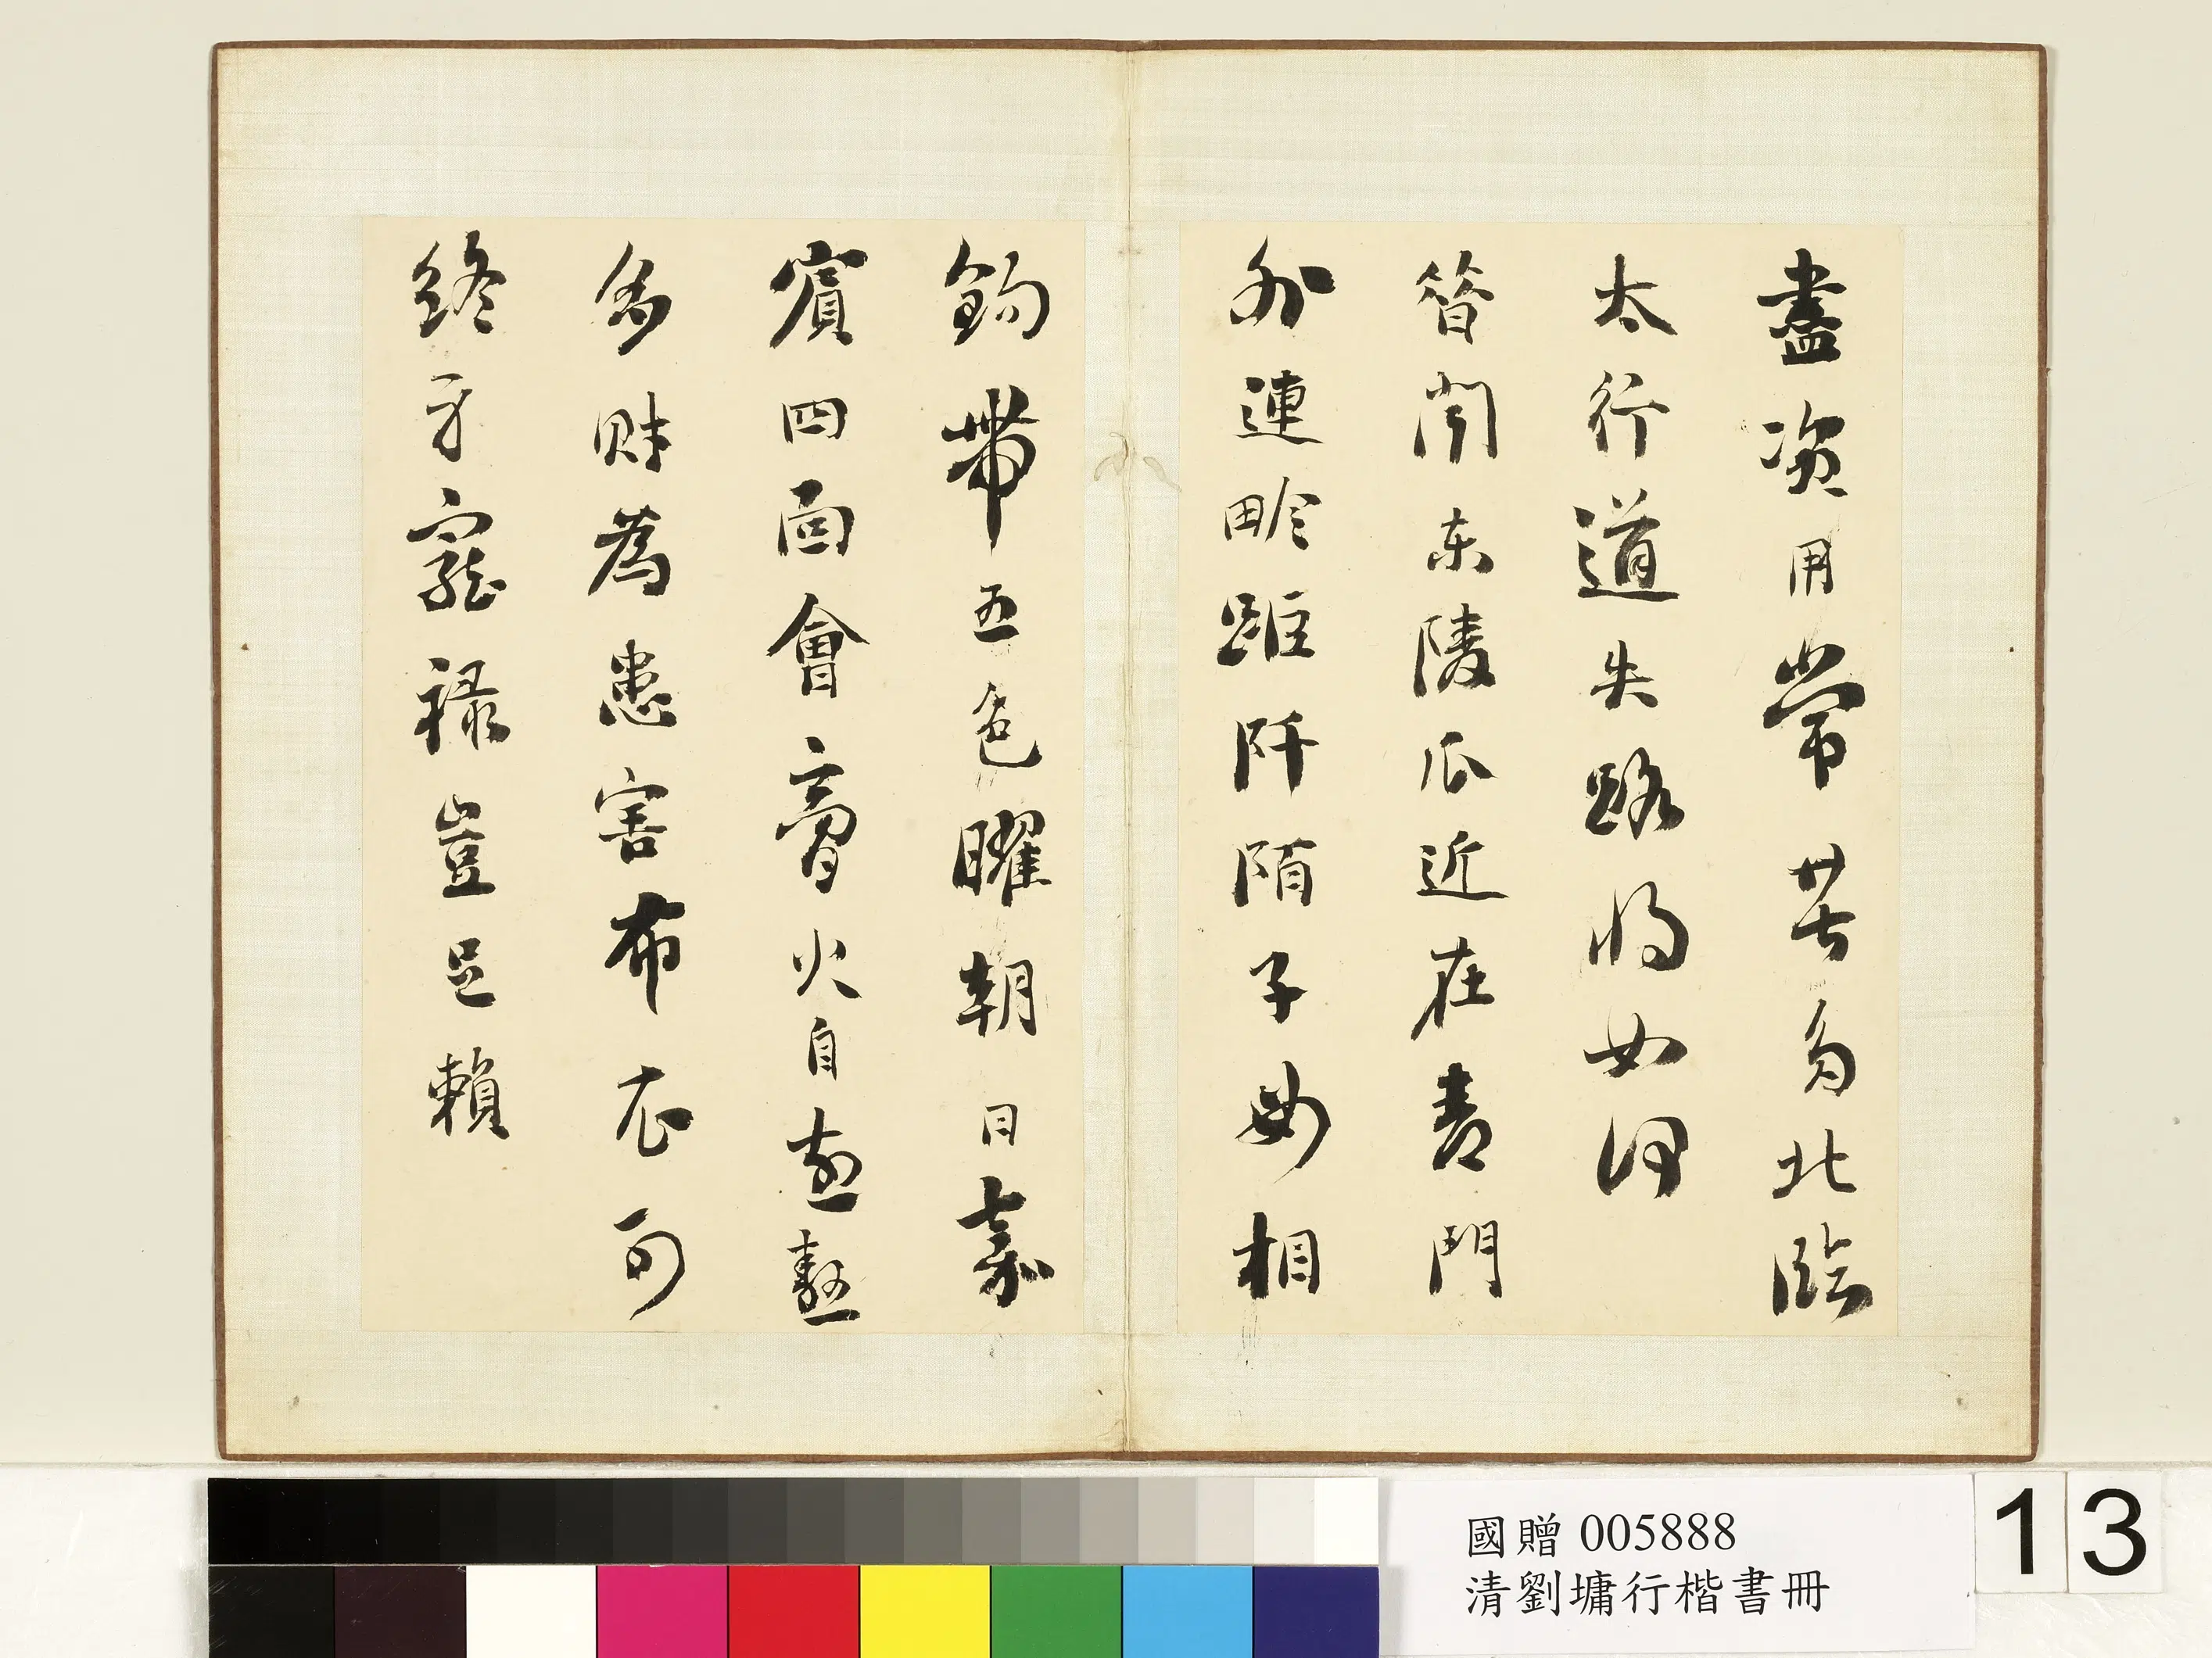 盡資用常苦多北臨
太行道失路將如何
昔聞東陵瓜近在青門
外連畛距阡陌子母相
鈎帶五色曜朝日嘉
賓四面會膏火自煎熬
多財為患害布衣可
終身寵祿豈足賴
國贈 005888
清劉墉行楷書冊
13